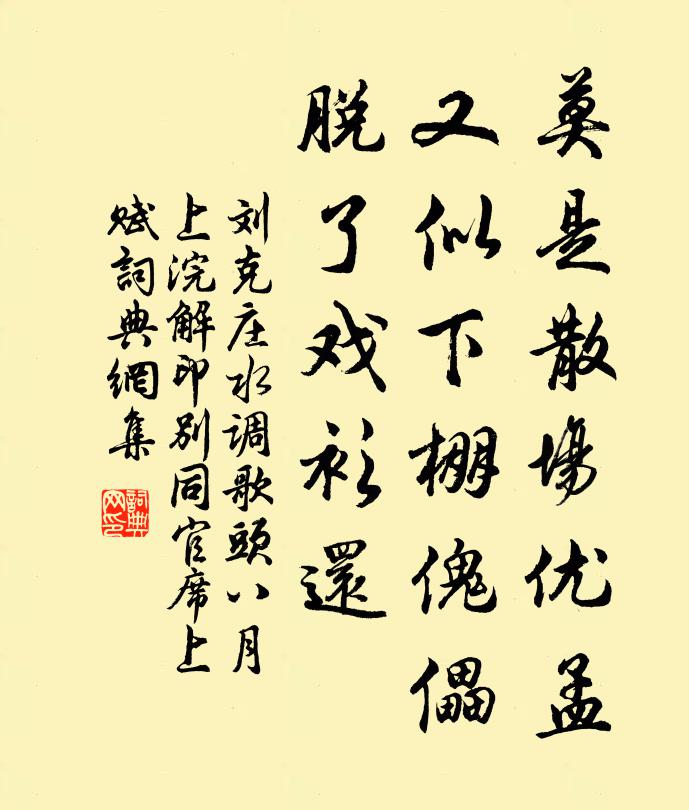 莫是散場优孟
又似下棚傀儡
脱了戏衫還
刘克庄水调歌頭八月
上浣解印别同官席上
赋詞典網集
詞典网印